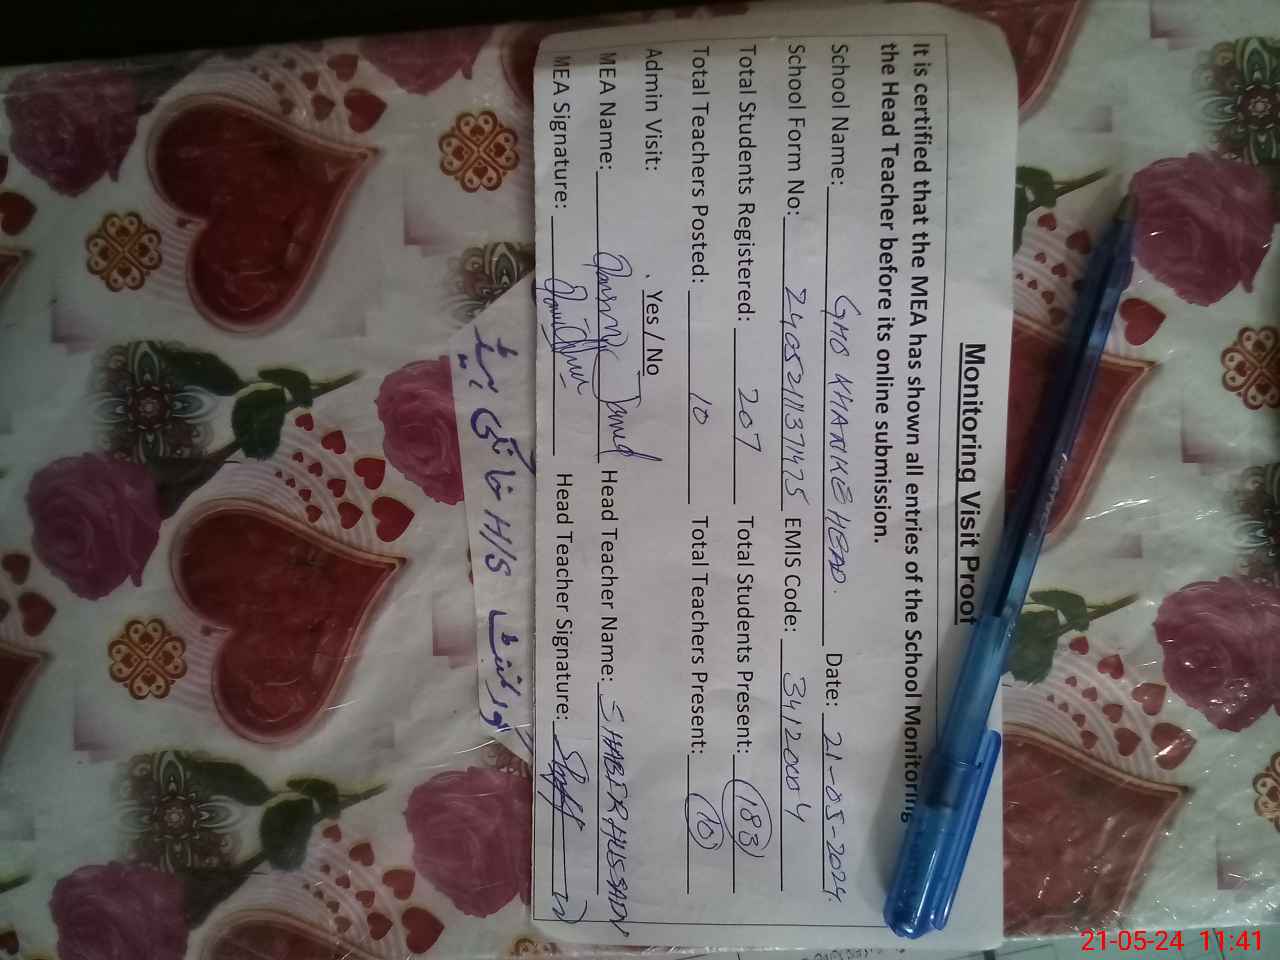 Monitoring Visit Proof
It is certified that the MEA has shown all entries of the School Monitoring
the Head Teacher before its online submission.
School Name: GHS KHATKE HEAD. Date: 21-05-2024.
School Form No: 240521137475 EMIS Code: 34120004
Total Students Registered: 207 Total Students Present: 183
Total Teachers Posted: 10 Total Teachers Present: 10
Admin Visit: Yes / No
MEA Name: Jamil Head Teacher Name: SHABIR HUSSAIN
MEA Signature: Head Teacher Signature:
H/S
21-05-24 11:41